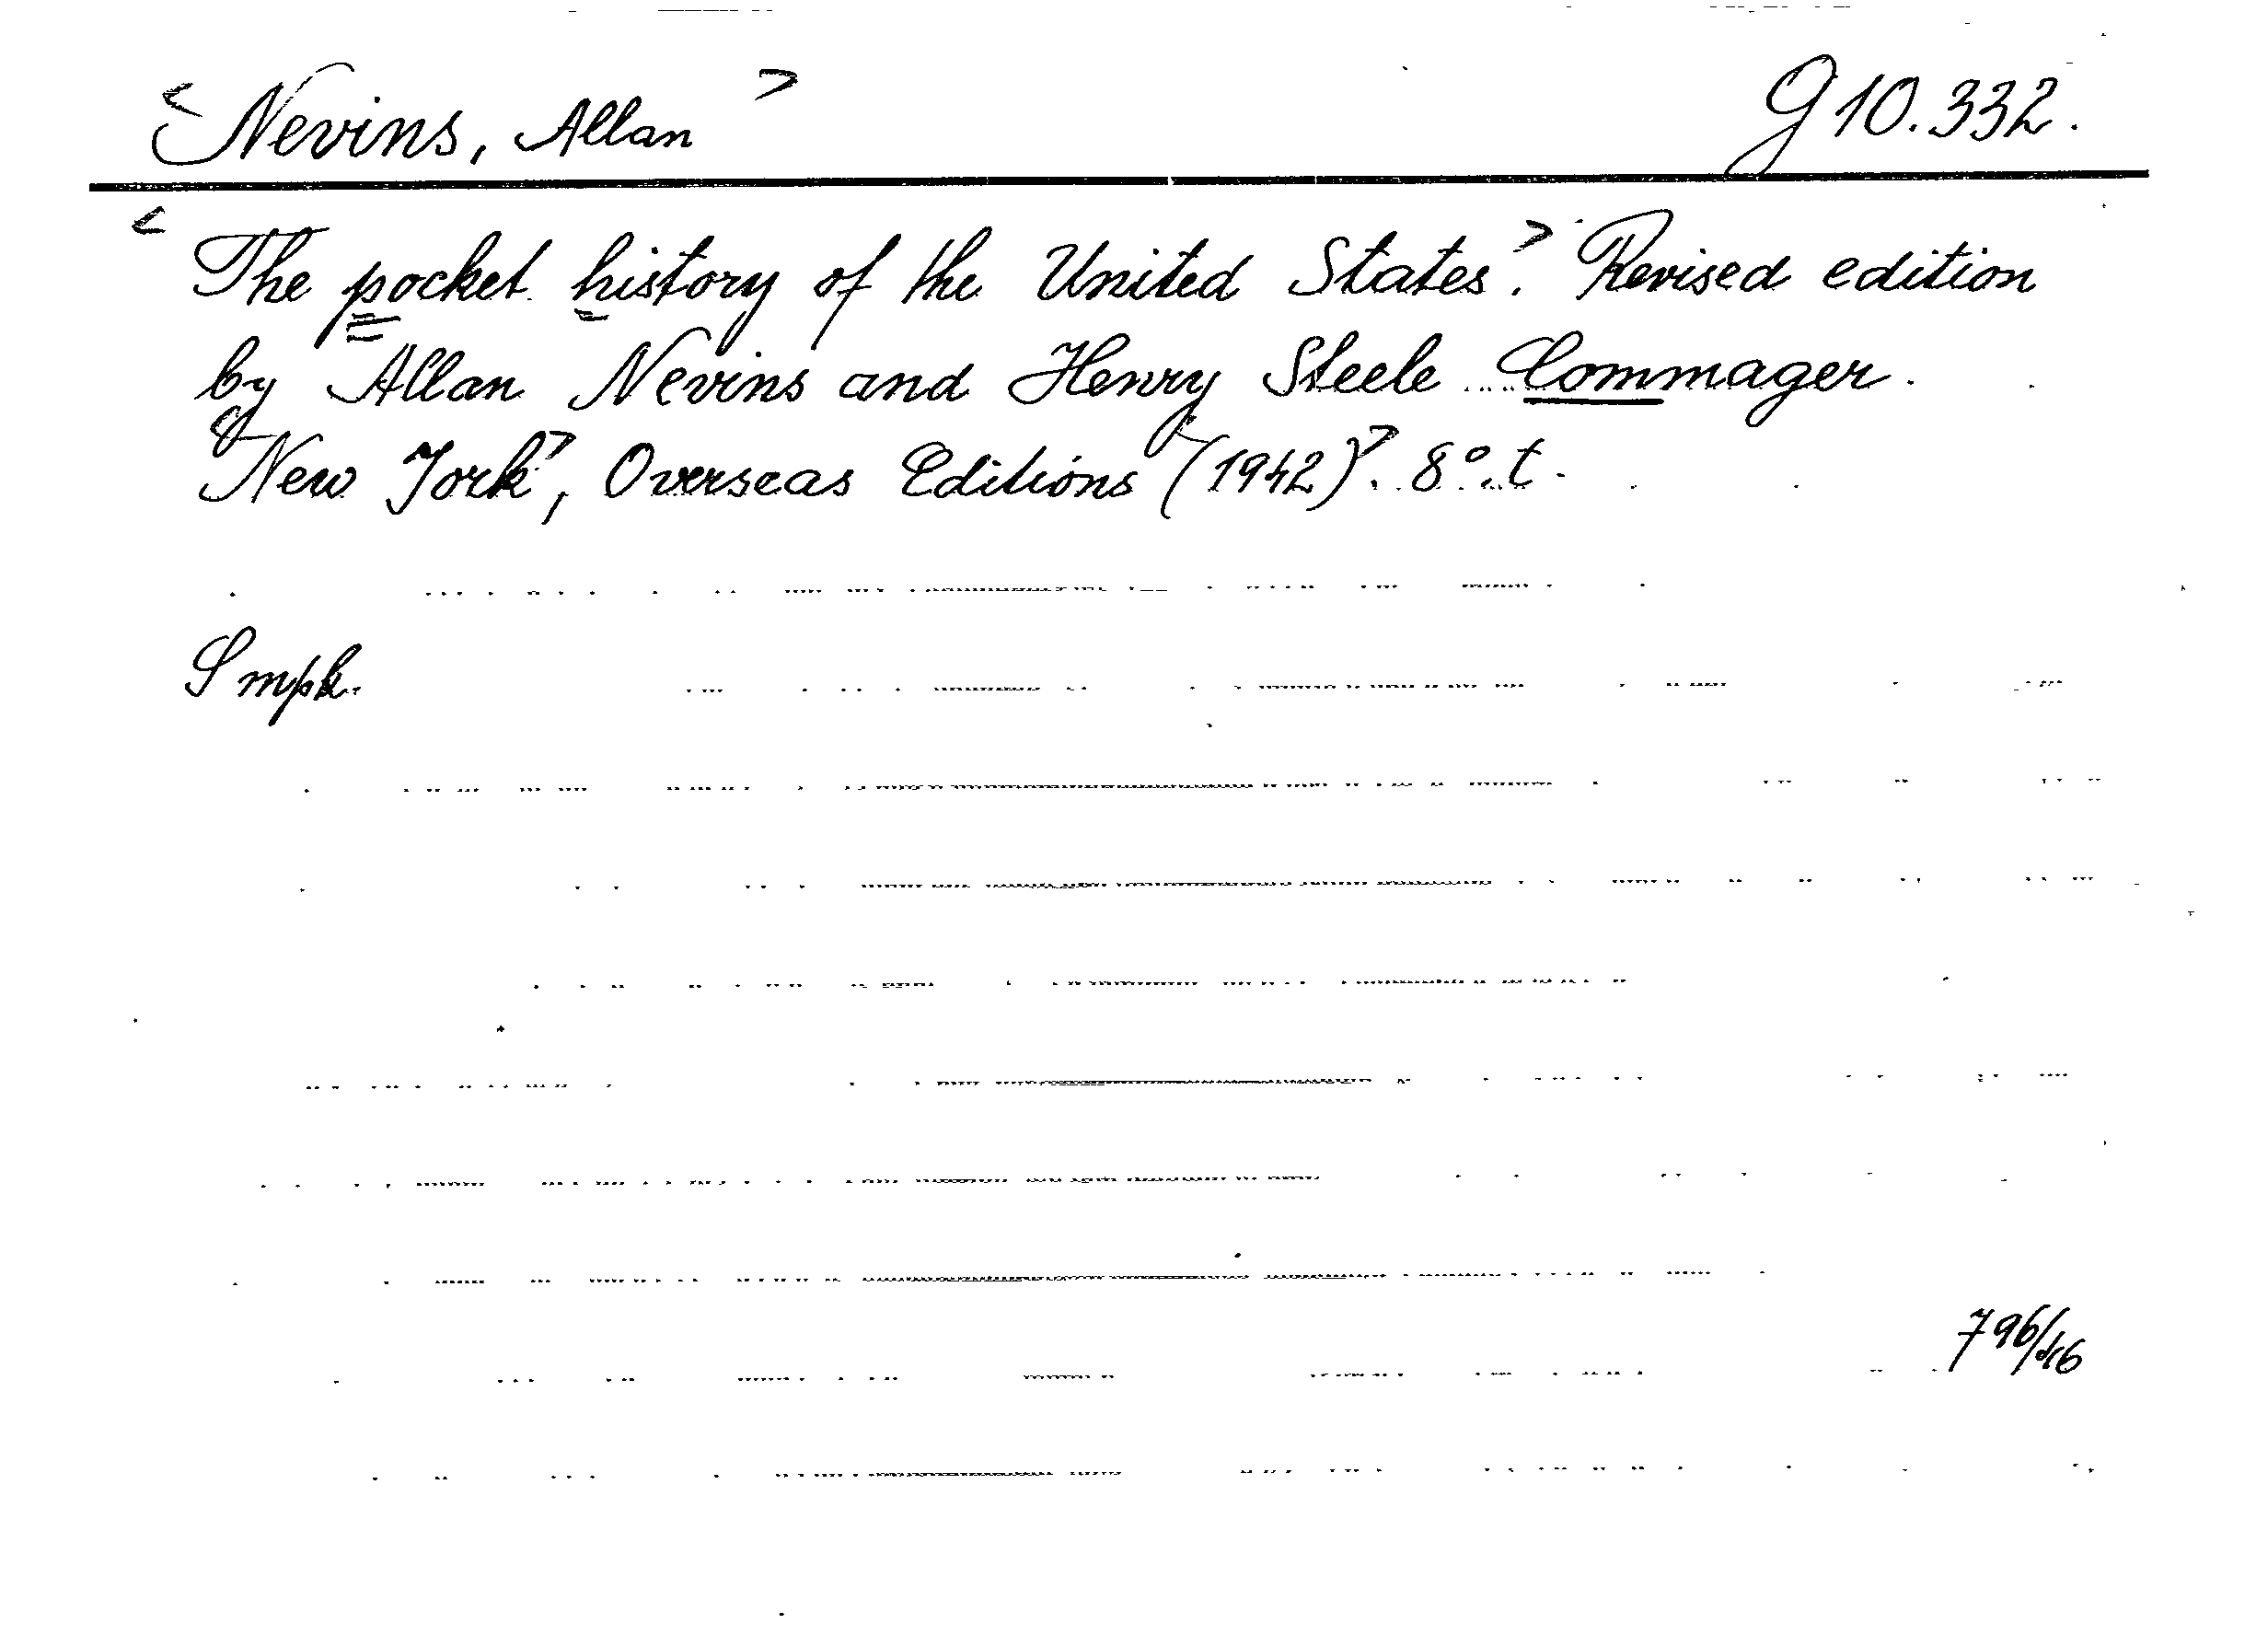 < Nevins, Allan > G 10.332.
< The pocket history of the United States >. Revised edition
by Allan Nevins and Henry Steele Commager.
< New York >, < Overseas Editions (1942) >. 8°. t.
S mpk.
796/